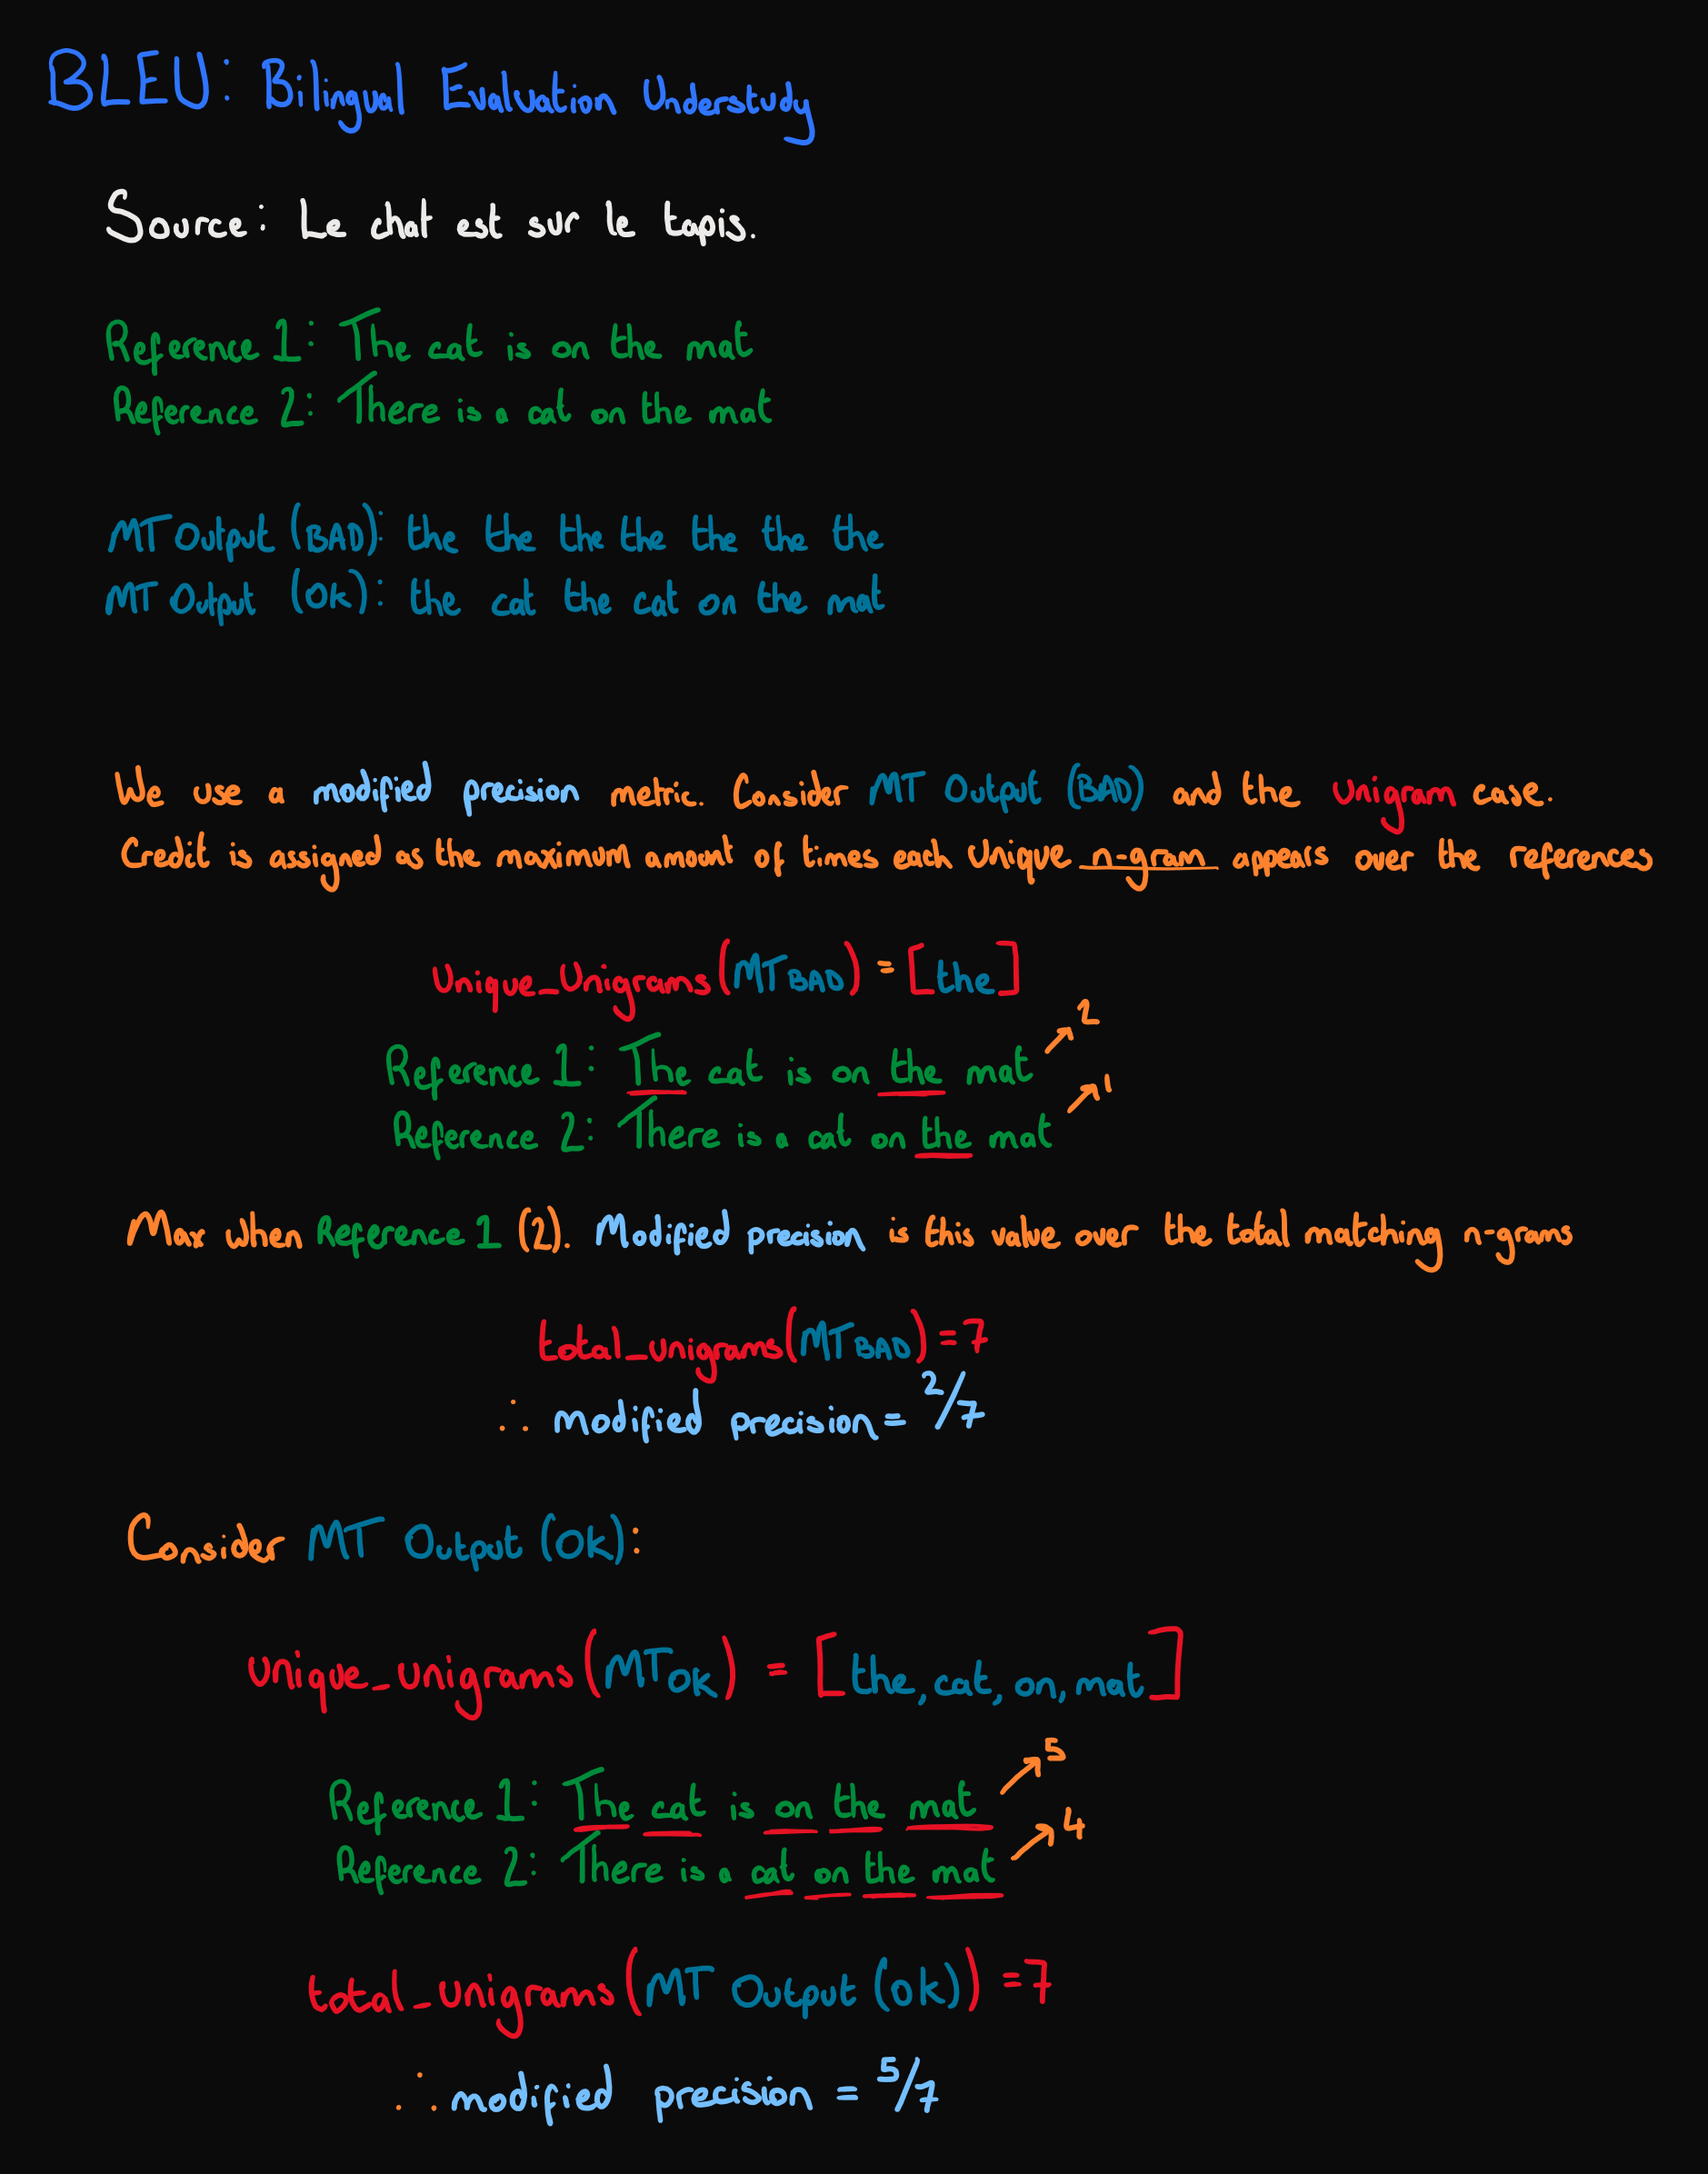 BLEU: Bilingual Evaluation Understudy
Source: Le chat est sur le tapis.
Reference 1: The cat is on the mat
Reference 2: There is a cat on the mat
MT Output (BAD): the the the the the the the
MT Output (OK): the cat the cat on the mat
We use a modified precision metric. Consider MT Output (BAD) and the Unigram case.
Credit is assigned as the maximum amount of times each Unique n-gram appears over the references
Unique_Unigrams(MT BAD) = [the]
Reference 1: The cat is on the mat ↗ 2
Reference 2: There is a cat on the mat ↗ 1
Max when Reference 1 (2). Modified precision is this value over the total matching n-grams
total_unigrams(MT BAD) = 7
∴ modified precision = 2/7
Consider MT Output (OK):
Unique_unigrams(MT OK) = [the, cat, on, mat]
Reference 1: The cat is on the mat ↗ 5
Reference 2: There is a cat on the mat ↗ 4
total_unigrams(MT Output (OK)) = 7
∴ modified precision = 5/7